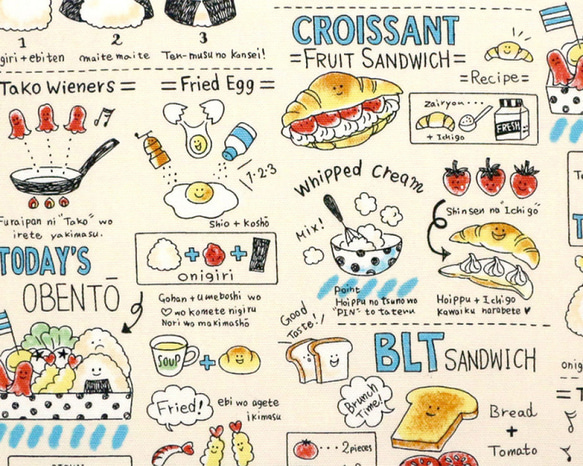 1
2
3
giri+ebiten
maite maite
Ten-musu no kansei!
Tako Wieners =
= Fried Egg =
1・2・3
Furaipan ni "Tako" wo
irete yakimasu.
Shio + koshō
TODAY'S
OBENTŌ
+
+
onigiri
Gohan + umeboshi wo
♡ wo komete nigiru
Nori wo makimashō
SOUP
+
Fried!
ebi wo agete
ikimasu
CROISSANT
=FRUIT SANDWICH=
=Recipe=
Zairyou....
+ Ichigo
FRESH
Whipped Cream
Mix!
Shinsen na "Ichigo"
Point
Hoippu no tsuno wo
"PIN" to tateru
Hoippu + Ichigo
Kawaiku narabete ♡
Good
Taste!
BLT SANDWICH
Brunch
Time!
Bread
+
Tomato
...2pieces
onig